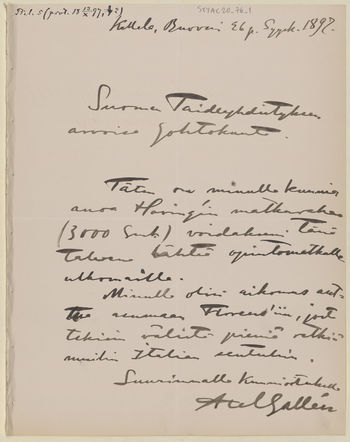 STYAC20_76_1
1897.
Suomen Taideyhdistyksen
arvoisa Johtokunta.
Täten on minulle kunnia
anoa Hoving'in matkarahaa
(3000 Smk) voidakseni tänä
talvena lähteä opintomatkalle
ulkomaille.
Minulla olisi aikomus
asumaan Florens'iin, josta
tekisin välistä pieniä retkiä
muihin Italian seutuihin.
Suurimmalla kunnioituksella
Axel Gallén